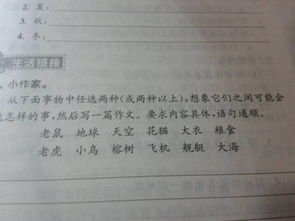 2. 夏:
3. 秋:
4. 冬:
生活链接
、小作家。
从下面事物中任选两种(或两种以上),想象它们之间可能会
怎样的事,然后写一篇作文。要求内容具体,语句通顺。
老鼠 地球 天空 花猫 大衣 粮食
老虎 小鸟 榕树 飞机 舰艇 大海